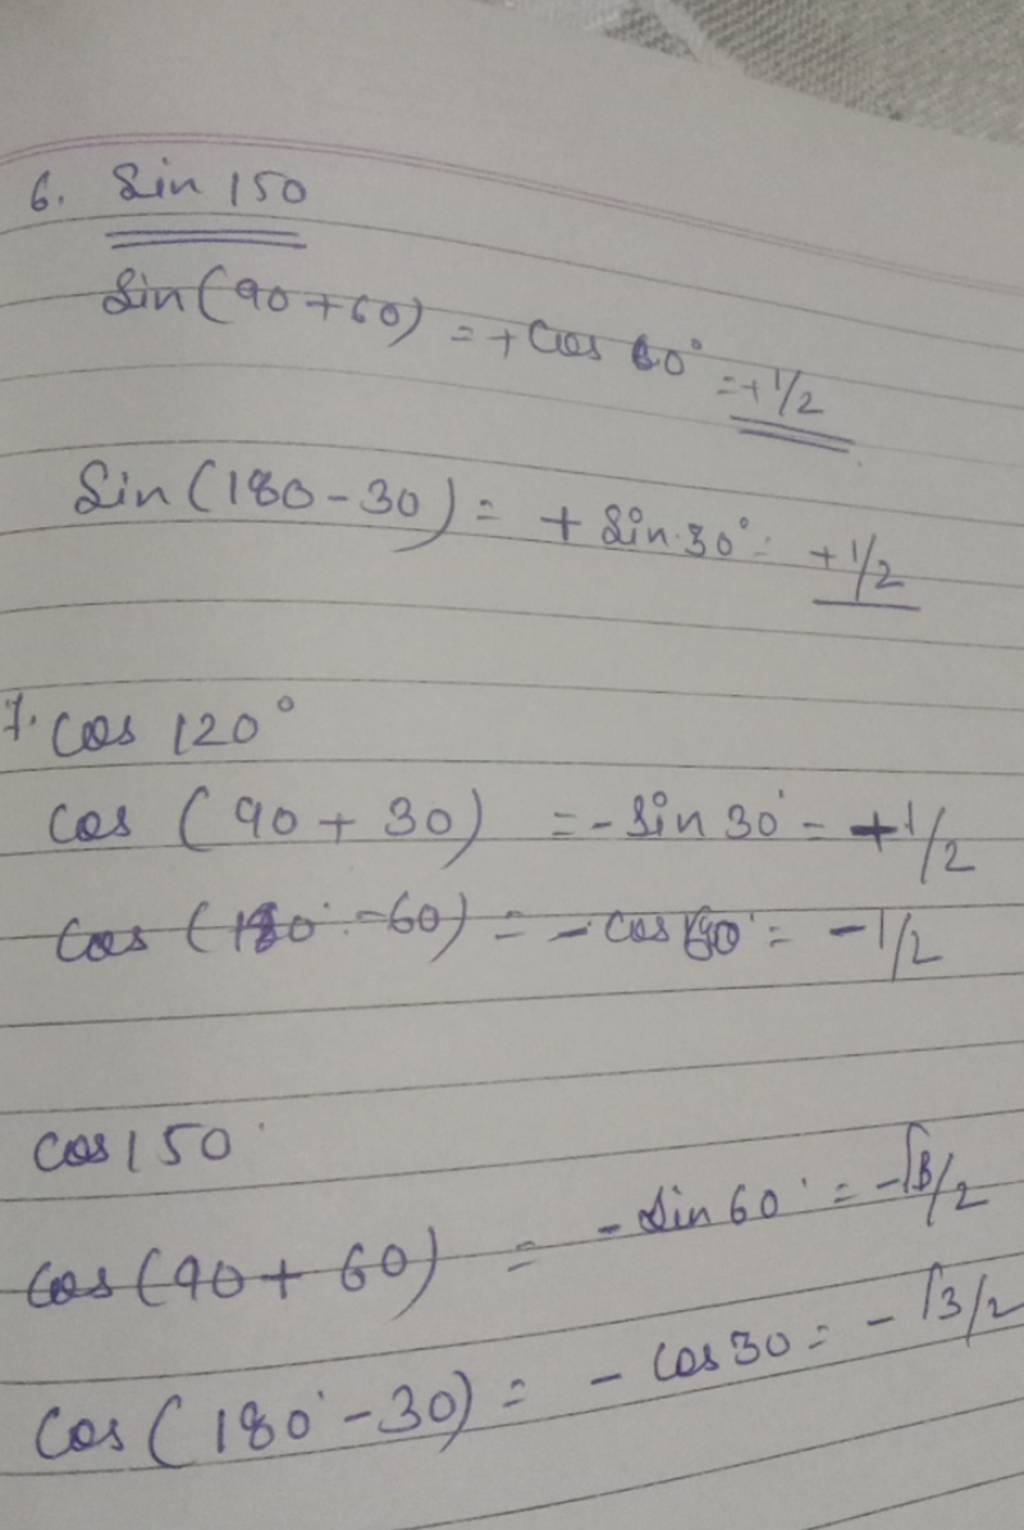 6. Sin 150
Sin(90+60) = + Cos 60° = + 1/2
Sin(180-30) = + Sin 30° = + 1/2
7. Cos 120°
Cos (90 + 30) = - Sin 30° = + 1/2
Cos (180° - 60) = - Cos 60° = - 1/2
Cos 150°
Cos(90 + 60) = - Sin 60° = - √3/2
Cos (180° - 30) = - Cos 30 = - √3/2